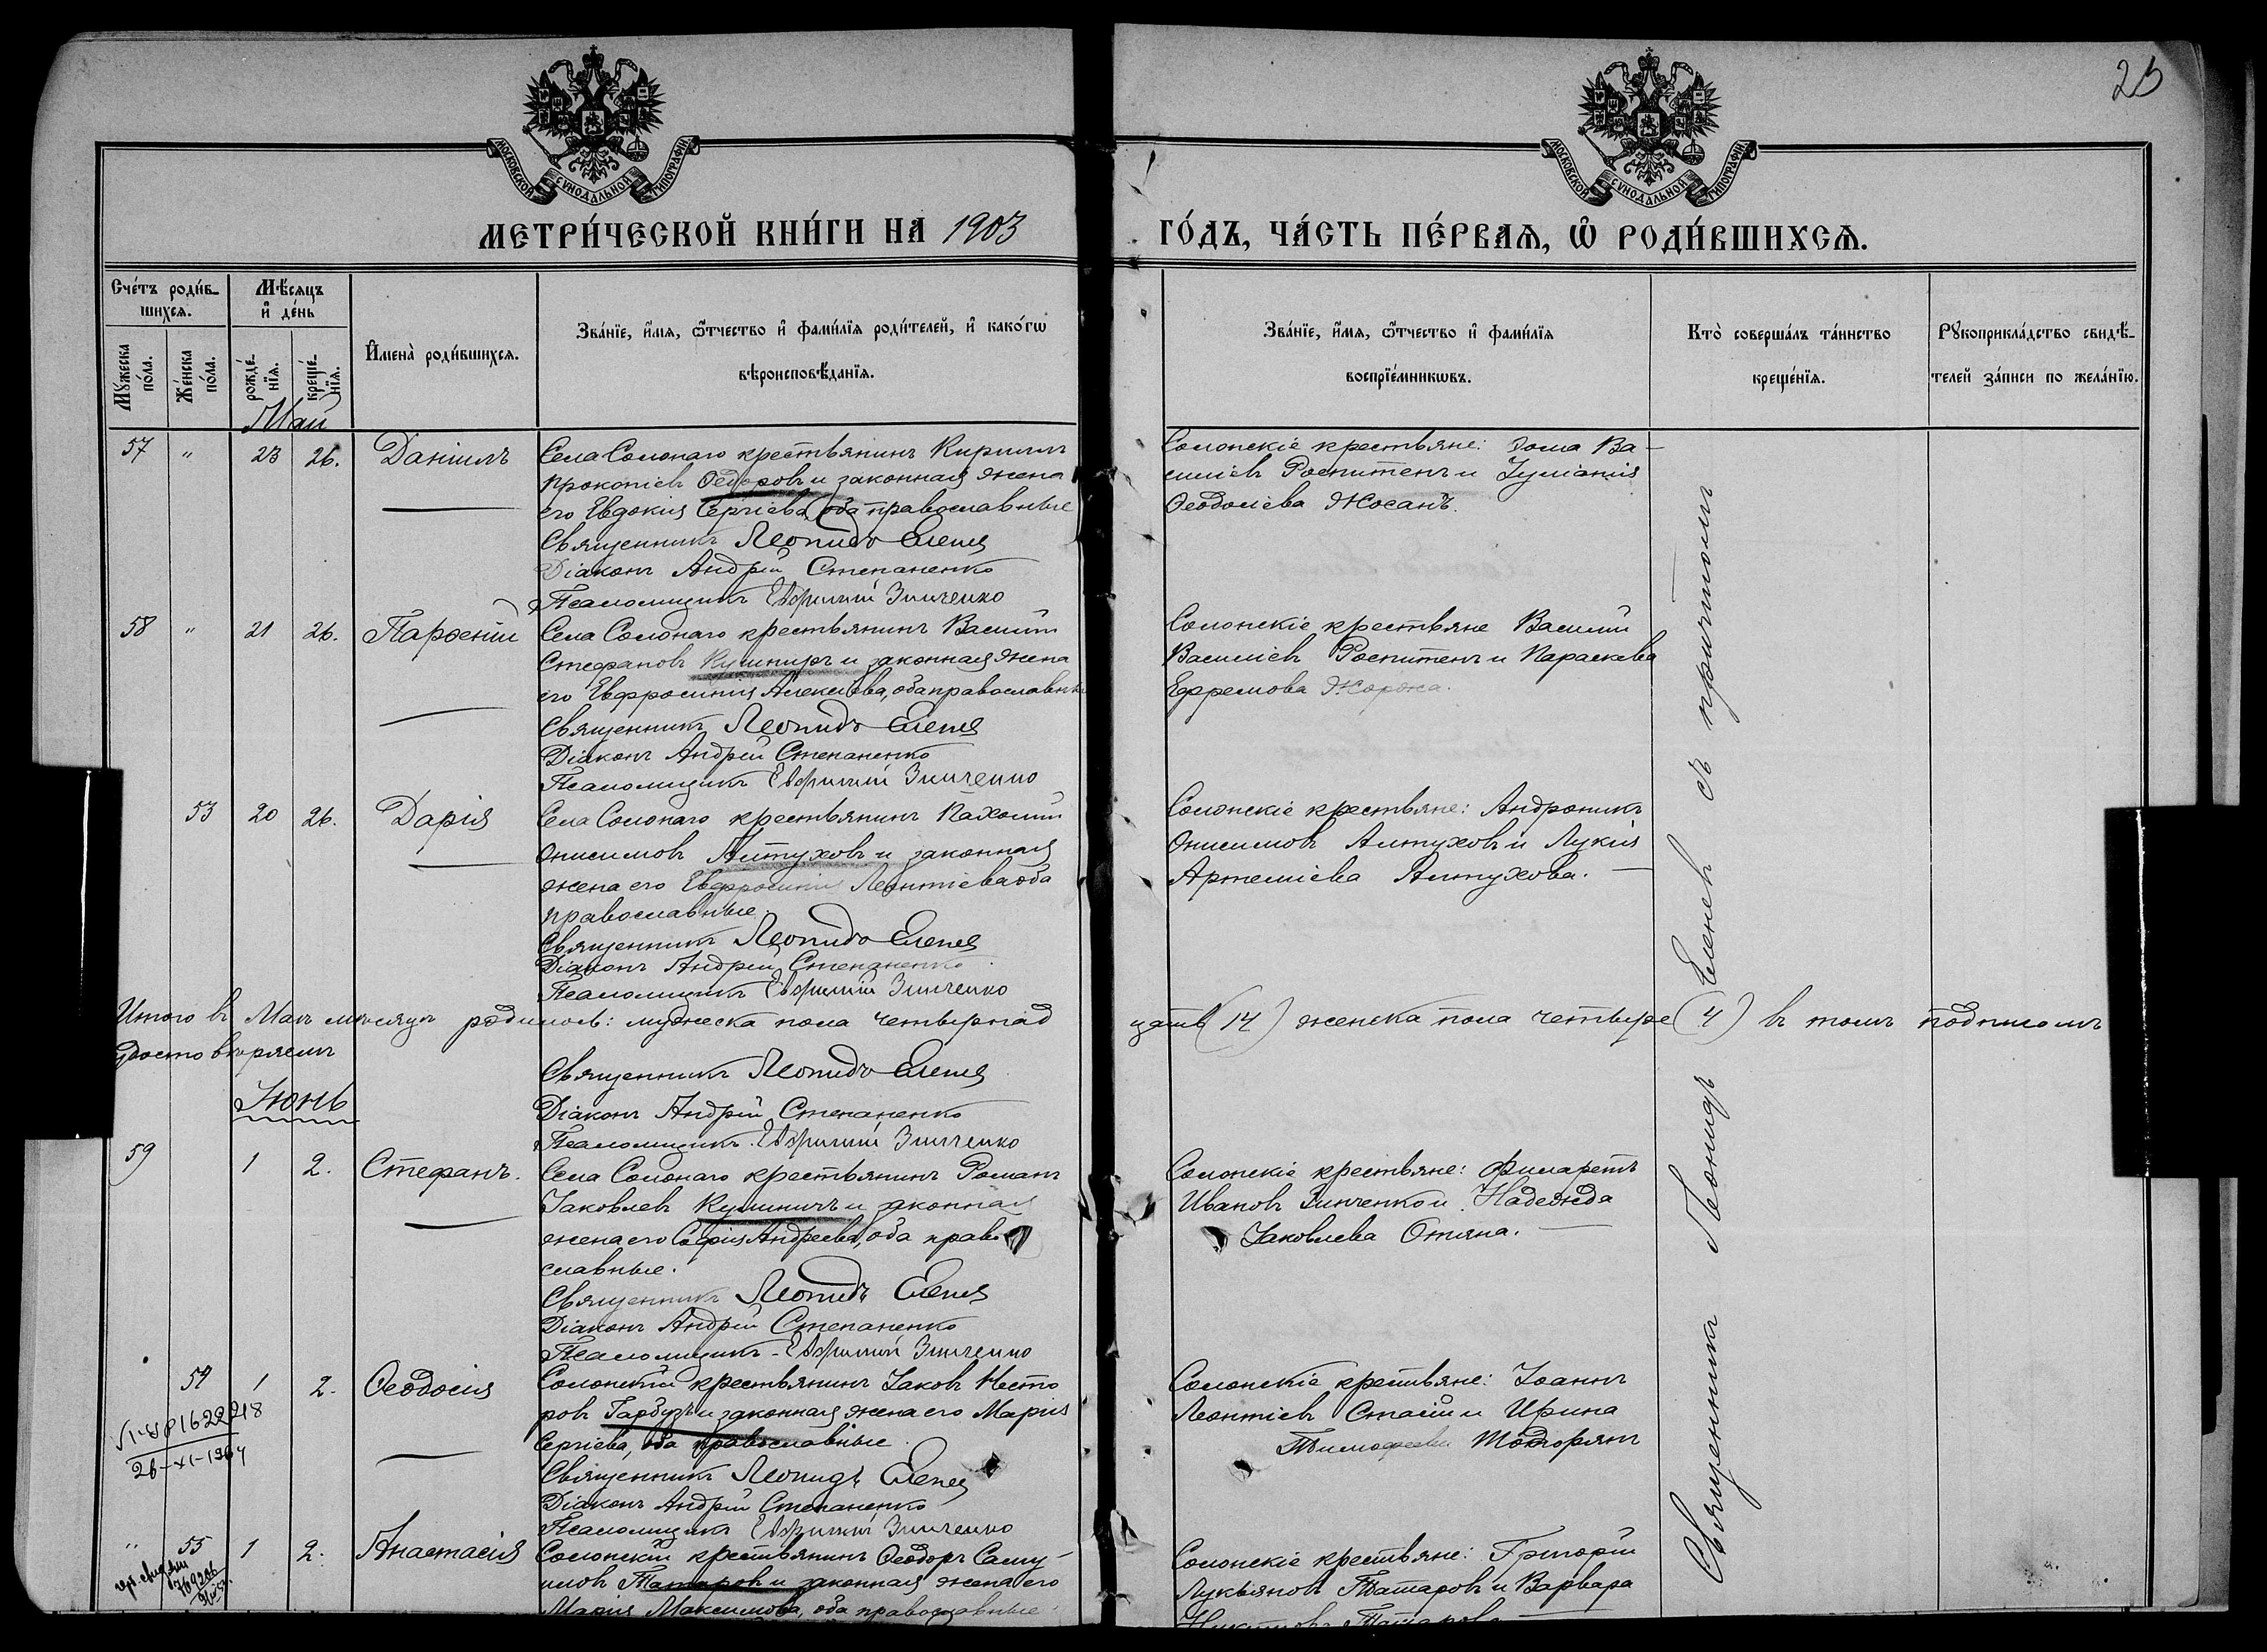 23
МОСКОВСКОЙ СУНОДАЛЬНОЙ ТИПОГРАФІИ
МОСКОВСКОЙ СУНОДАЛЬНОЙ ТИПОГРАФІИ
МЕТРИ́ЧЕСКОЙ КНИ́ГИ НА 1903
ГО́ДЪ, ЧА́СТЬ ПЕ́РВАѦ, Ѡ РОДИ́ВШИХСѦ.
Сче́тъ роди́в-
шихсѧ.
Мꙋ́жеска по́ла.
Же́нска по́ла.
Мѣ́сѧцъ
и҆ де́нь
рожде́-
нїѧ.
креще́-
нїѧ.
И҆мена̀ роди́вшихсѧ.
Зва́нїе, и҆́мѧ, ѻ҆́тчество и҆ фами́лїѧ роди́телей, и҆ како́гѡ
вѣроисповѣ́данїѧ.
Зва́нїе, и҆́мѧ, ѻ҆́тчество и҆ фами́лїѧ
воспрїе́мникѡвъ.
Кто̀ соверша́лъ та́инство
креще́нїѧ.
Рꙋкоприкла́дство свидѣ́-
телей за́писи по жела́нїю.
Май
57 " 23 26. Даніилъ
Села Солонаго крестьянинъ Кириллъ
Прокопіевъ Ѳедоровъ и законная жена
его Евдокія Сергіева, оба православные
Священникъ Леонидъ Еленев
Діаконъ Андрей Степаненко
Псаломщикъ Евфимій Зинченко
Солонскіе крестьяне: Ѳома Ва-
силіевъ Роспитенъ и Іуліанія
Ѳеодосіева Жосанъ.
58 " 21 26. Парѳеній
Села Солонаго крестьянинъ Василій
Стефановъ Кушниръ и законная жена
его Евфросинія Алексіева, оба православны
Священникъ Леонидъ Еленев
Діаконъ Андрей Степаненко
Псаломщикъ Евфимій Зинченко
Солонскіе крестьяне Василій
Василіевъ Роспитенъ и Параскева
Ефремова
53 20 26. Дарія
Села Солонаго крестьянинъ Пахомій
Онисимовъ Алтуховъ и законная
жена его Евфросинія Леонтіева оба
православные.
Священникъ Леонидъ Еленев
Діаконъ Андрей Степаненко
Псаломщикъ Евфимій Зинченко
Солонскіе крестьяне: Андроникъ
Онисимовъ Алтуховъ и Лукія
Артеміева Алтухова.
Итого въ Маѣ мѣсяцѣ родилось: мужеска пола четырнад
цать (14) женска пола четыре (4) въ томъ подписомъ
удостовѣряемъ
Священникъ Леонидъ Еленев
Діаконъ Андрей Степаненко
Псаломщикъ Евфимій Зинченко
Іюнь
59 1 2. Стефанъ.
Села Солонаго крестьянинъ Романъ
Іаковлевъ и законная
жена его Софія Андреева, оба право
славные.
Священникъ Леонидъ Еленев
Діаконъ Андрей Степаненко
Псаломщикъ - Евфимій Зинченко
Солонскіе крестьяне: Филаретъ
Ивановъ Зинченко и Надежда
Іаковлева Отяна.
54 1 2. Ѳеодосія
26-XI-1964
Солонскій крестьянинъ Іаковъ Несто
ровъ Гарбузъ и законная жена его Марія
Сергіева, оба православные
Священникъ Леонидъ Еленев
Діаконъ Андрей Степаненко
Псаломщикъ Евфимій Зинченко
Солонскіе крестьяне: Іоаннъ
Леонтіевъ Стасій и Ирина
Тимофеева
" 55 1 2. Анастасія
Солонскій крестьянинъ Ѳеодоръ Саму-
иловъ Татаровъ и законная жена его
Марія Максимова, оба православные
Солонскіе крестьяне: Григорій
Лукьяновъ Татаровъ и Варвара
Татарова
Священникъ Леонидъ Еленевъ съ причтомъ